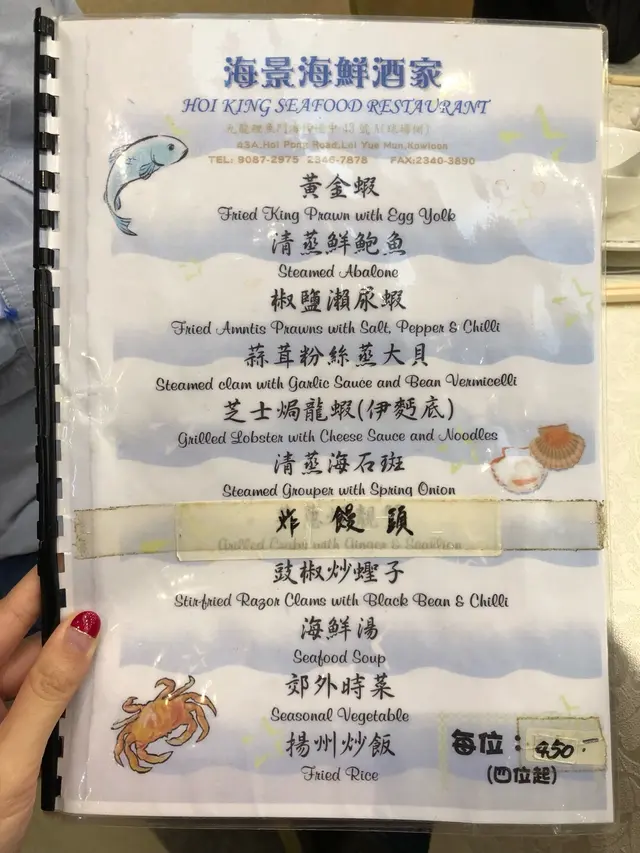 海景海鮮酒家
HOI KING SEAFOOD RESTAURANT
九龍鯉魚門海傍道中43號A(球場側)
43A,Hoi Pong Road,Lei Yue Mun,Kowloon
TEL: 9087-2975 2346-7878 FAX:2340-3890
黃金蝦
Fried King Prawn with Egg Yolk
清蒸鮮鮑魚
Steamed Abalone
椒鹽瀨尿蝦
Fried Amntis Prawns with Salt, Pepper & Chilli
蒜茸粉絲蒸大貝
Steamed clam with Garlic Sauce and Bean Vermicelli
芝士焗龍蝦(伊麵底)
Grilled Lobster with Cheese Sauce and Noodles
清蒸海石斑
Steamed Grouper with Spring Onion
炸饅頭
with Ginger &
豉椒炒蟶子
Stir-fried Razor Clams with Black Bean & Chilli
海鮮湯
Seafood Soup
郊外時菜
Seasonal Vegetable
揚州炒飯
Fried Rice
每位：450.-
(四位起)